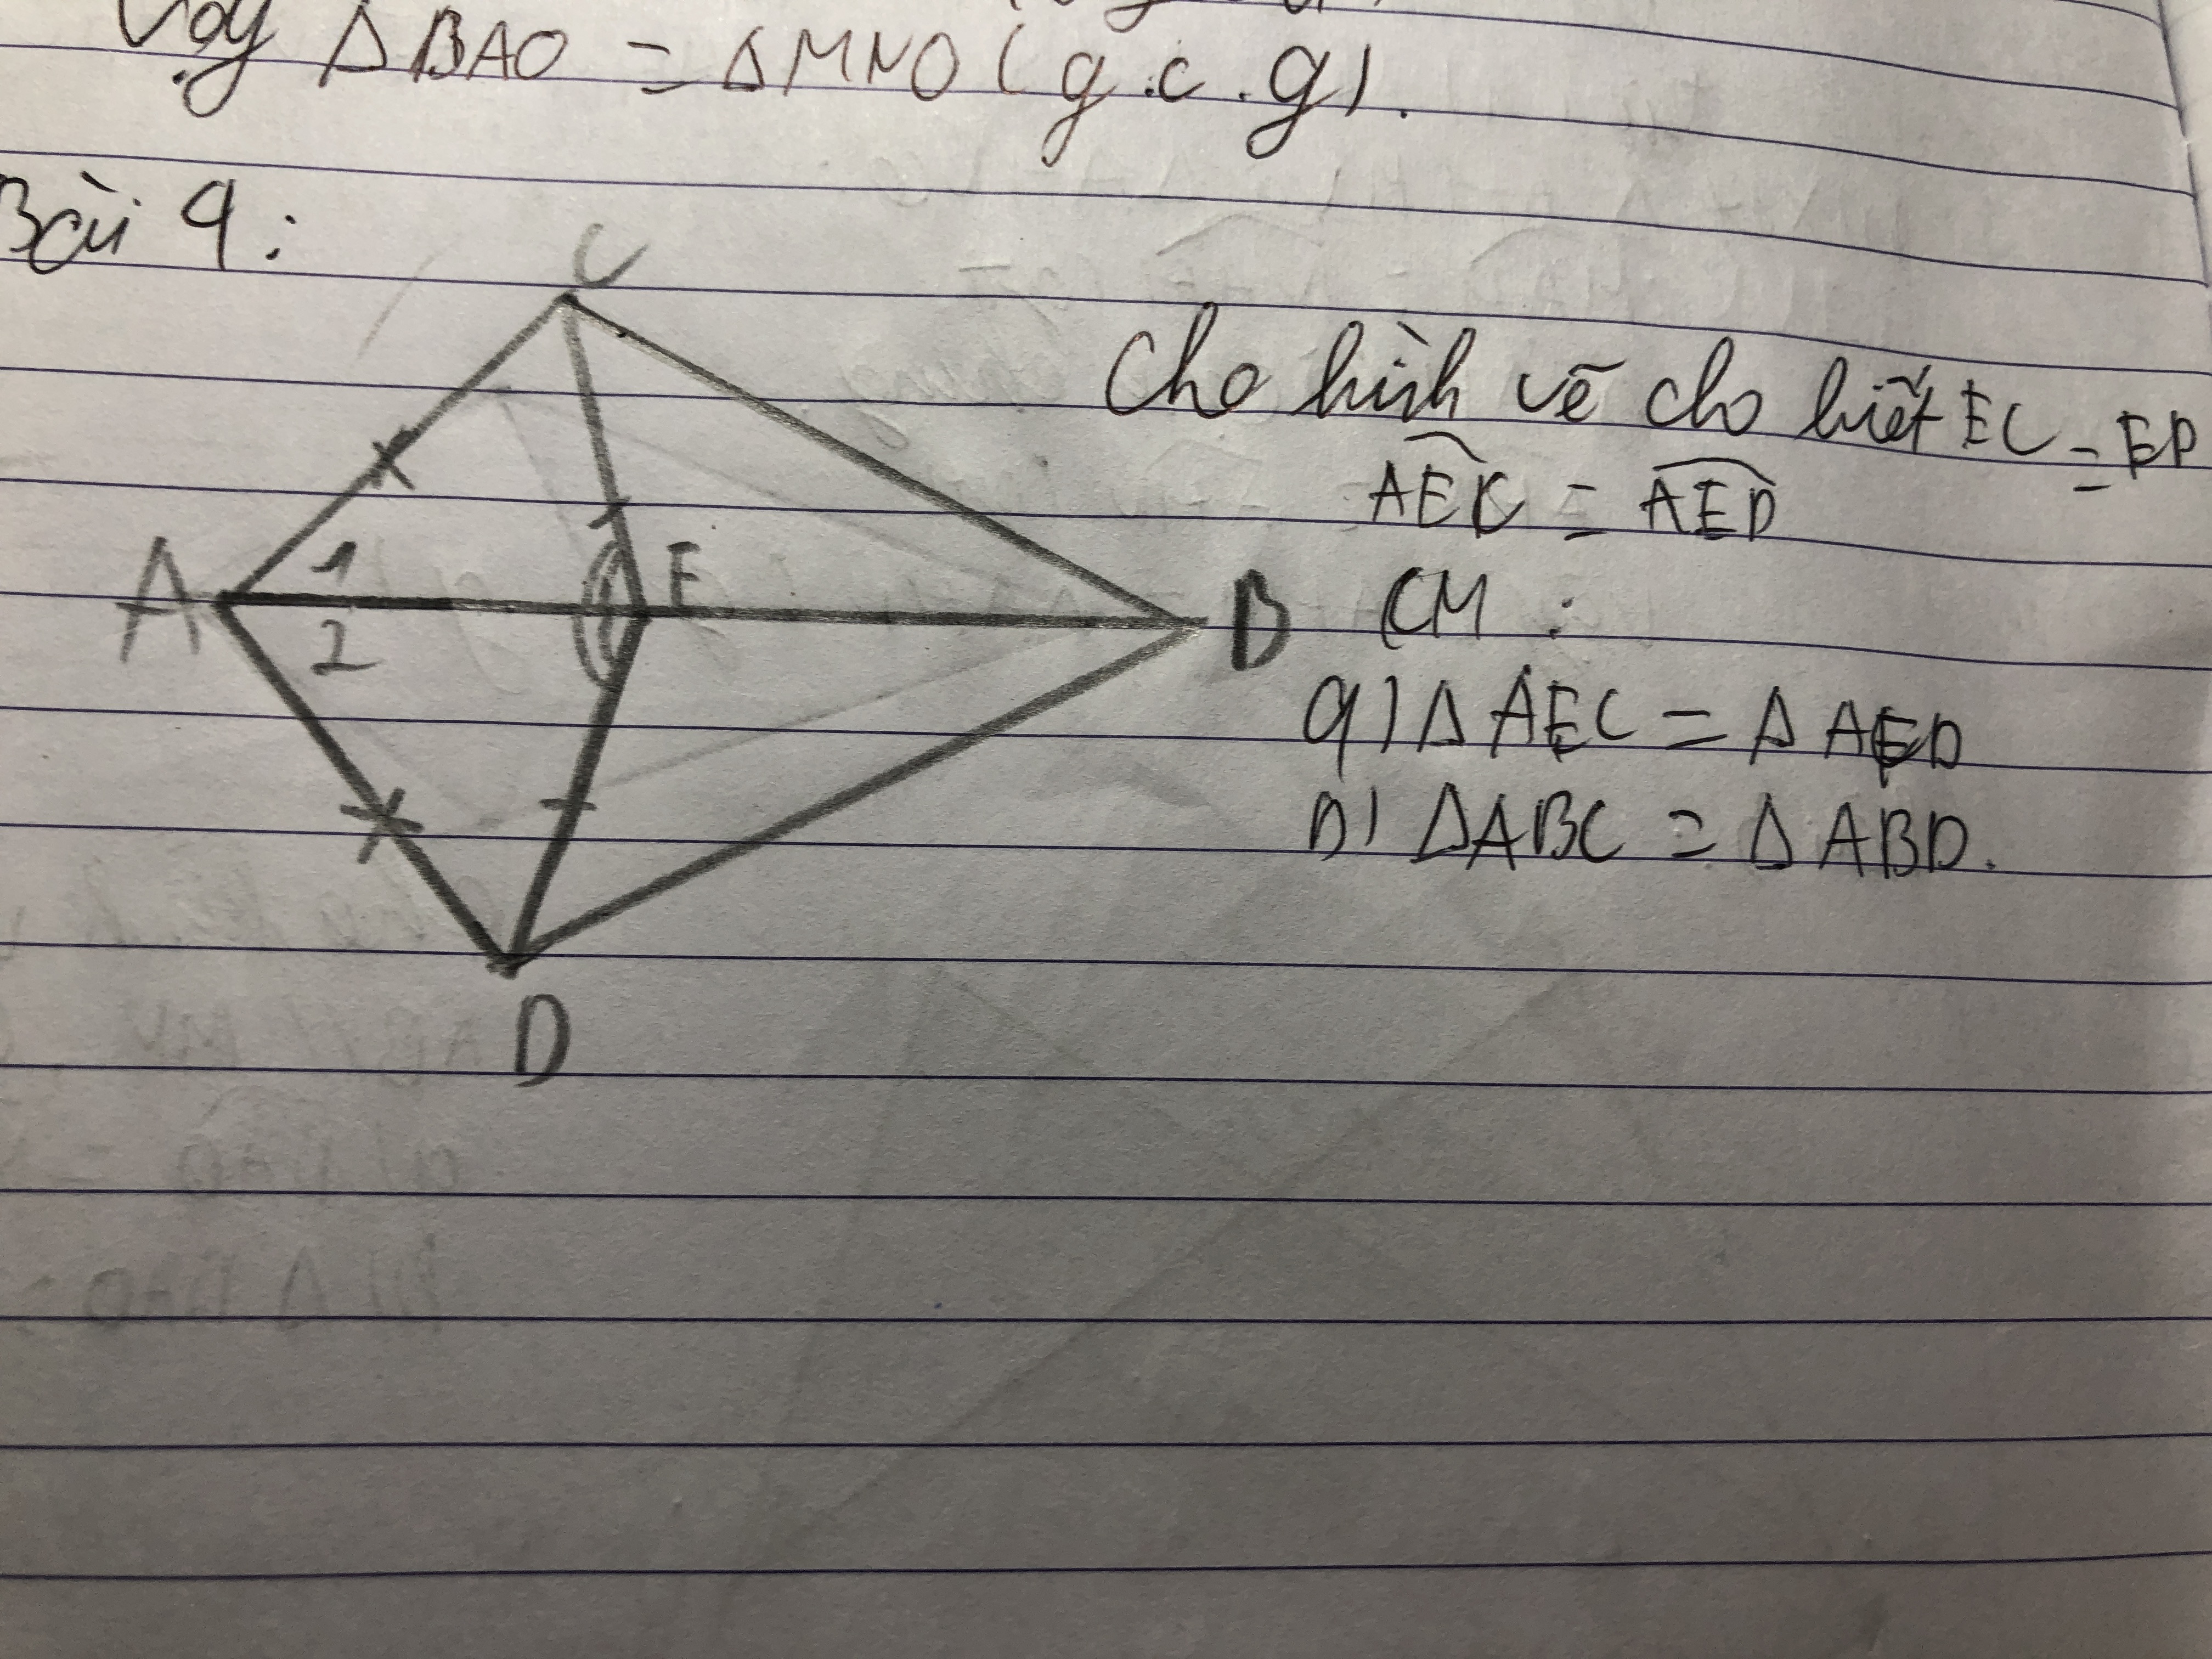 Vậy ΔBAO = ΔMNO (g.c.g).
Bài 9:
C
Cho hình vẽ cho biết EC = ED
AEC = AED
A 1 E B
2
CM:
a) ΔAEC = ΔAED
b) ΔABC = ΔABD.
D